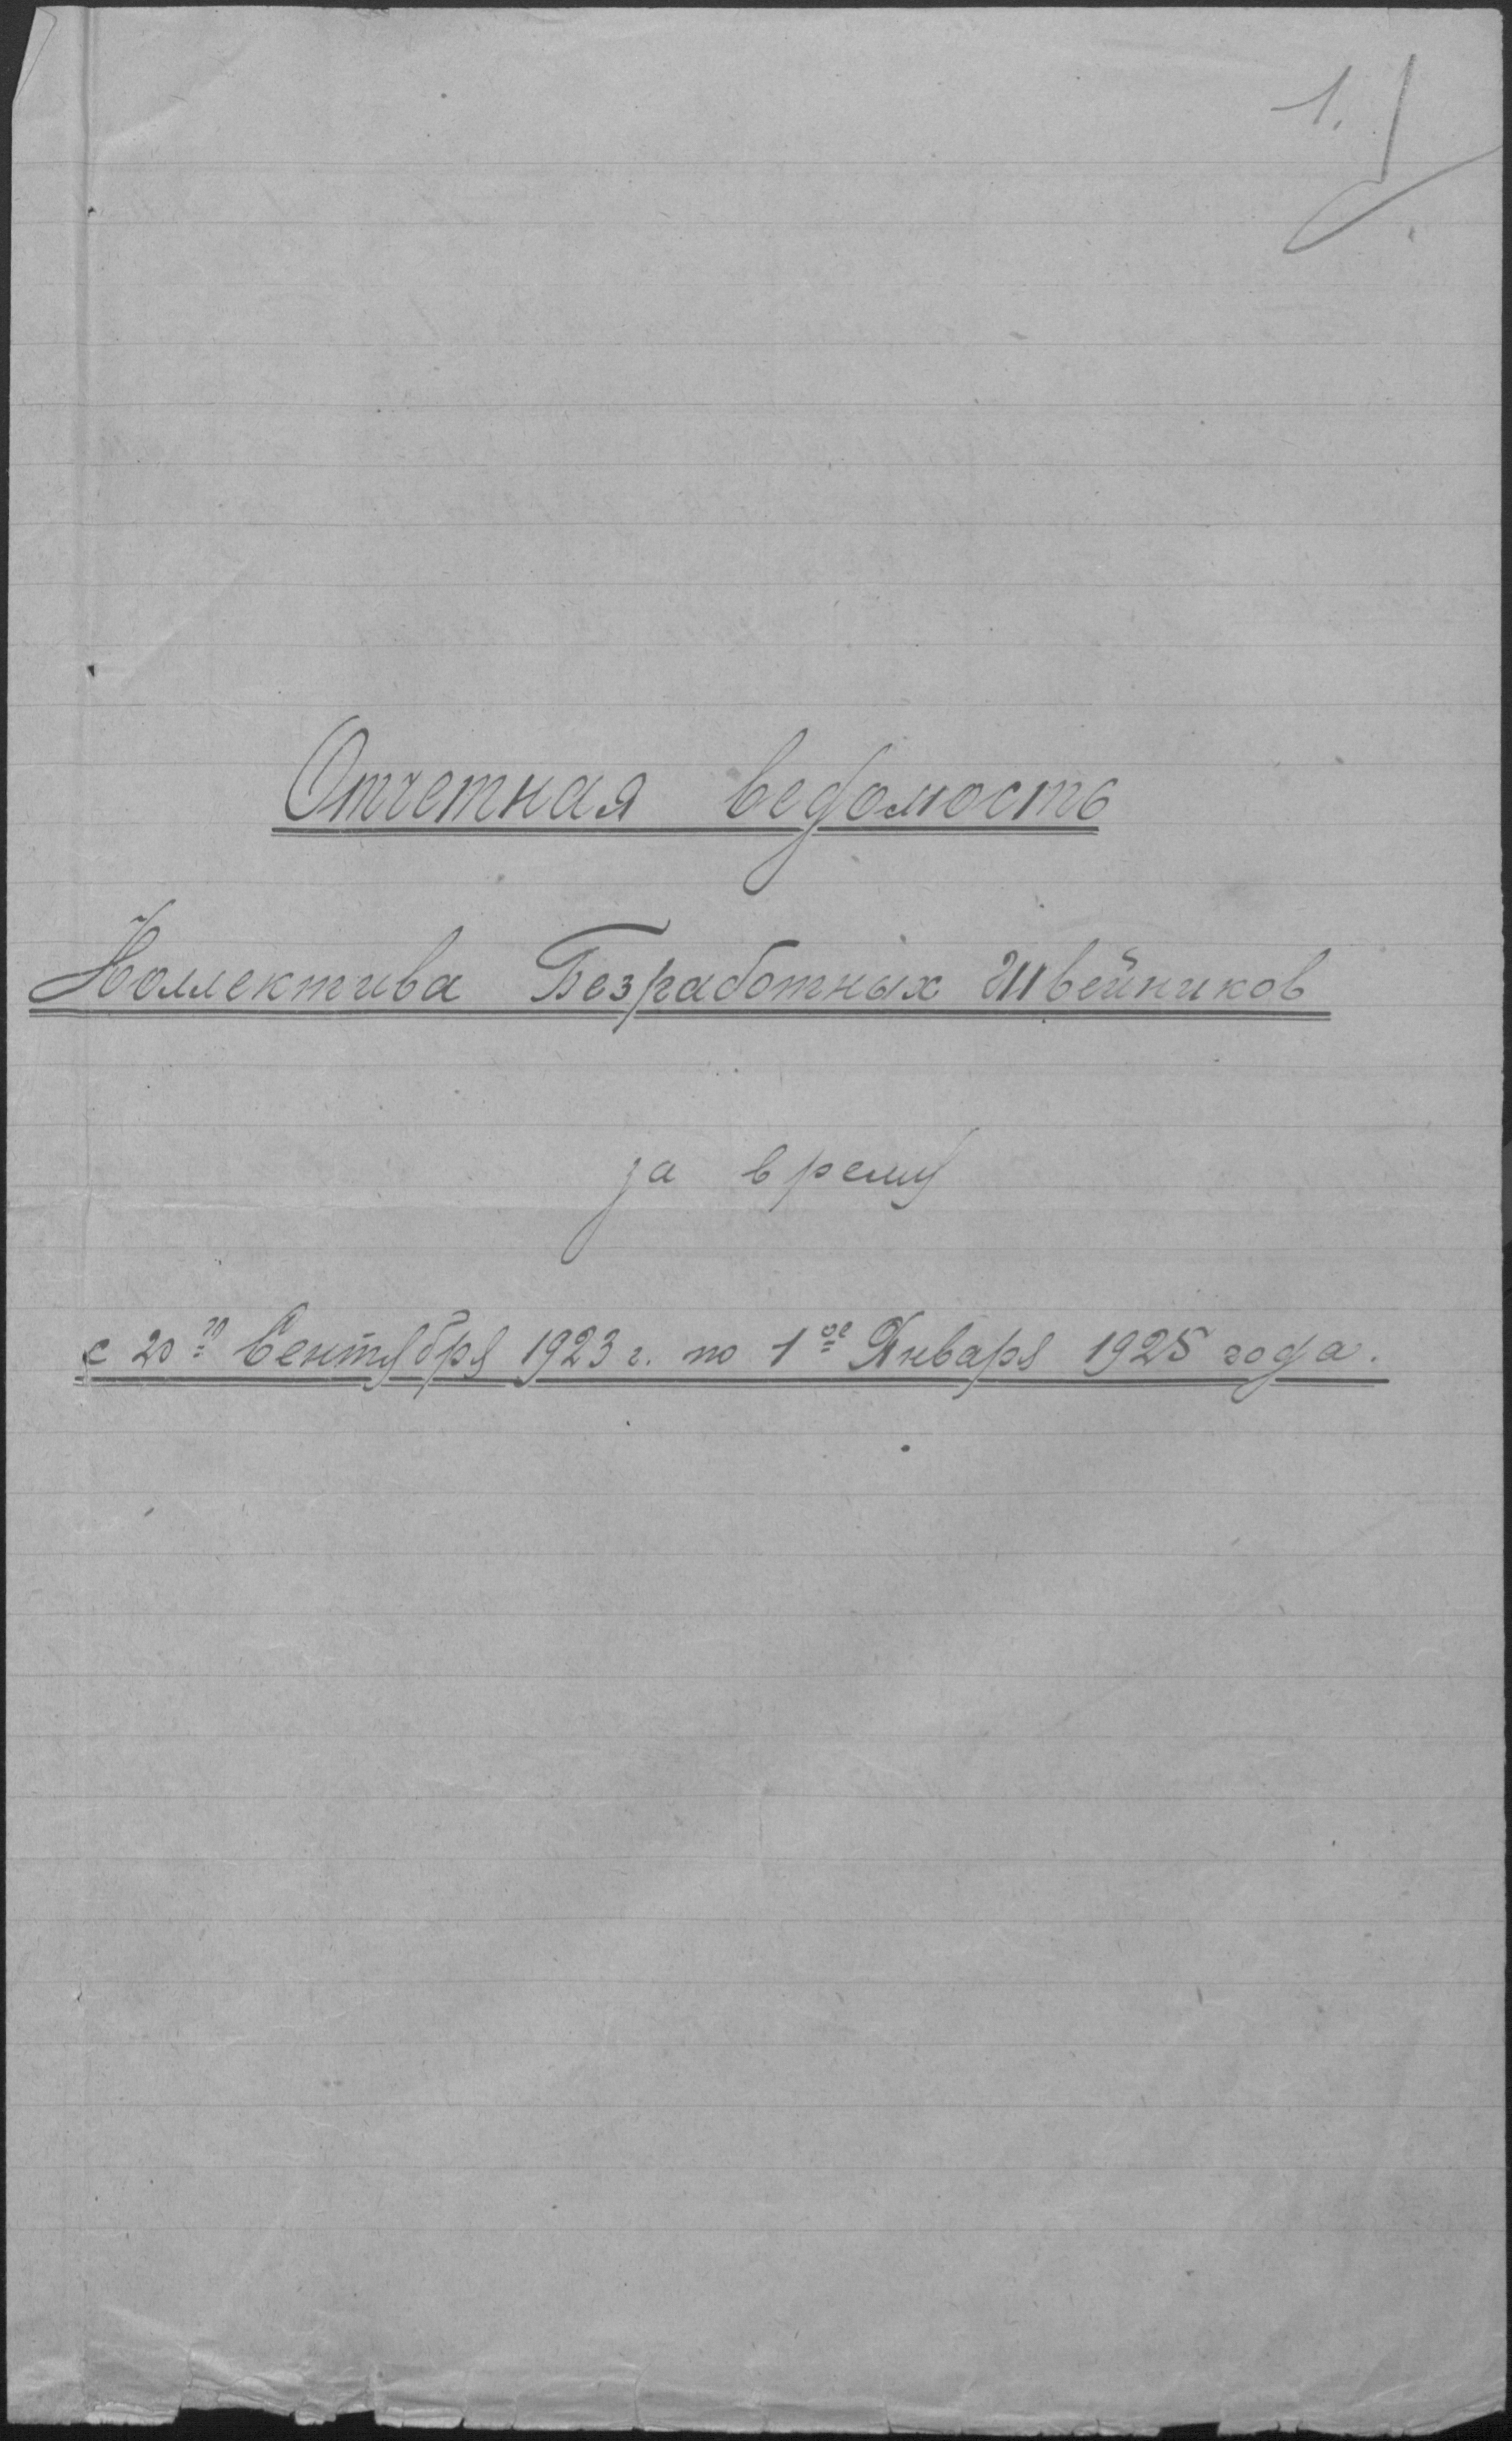 1.
Отчетная ведомость
Коллектива Безработных Швейников
за время
с 20го Сентября 1923 г. по 1ое Января 1925 года.